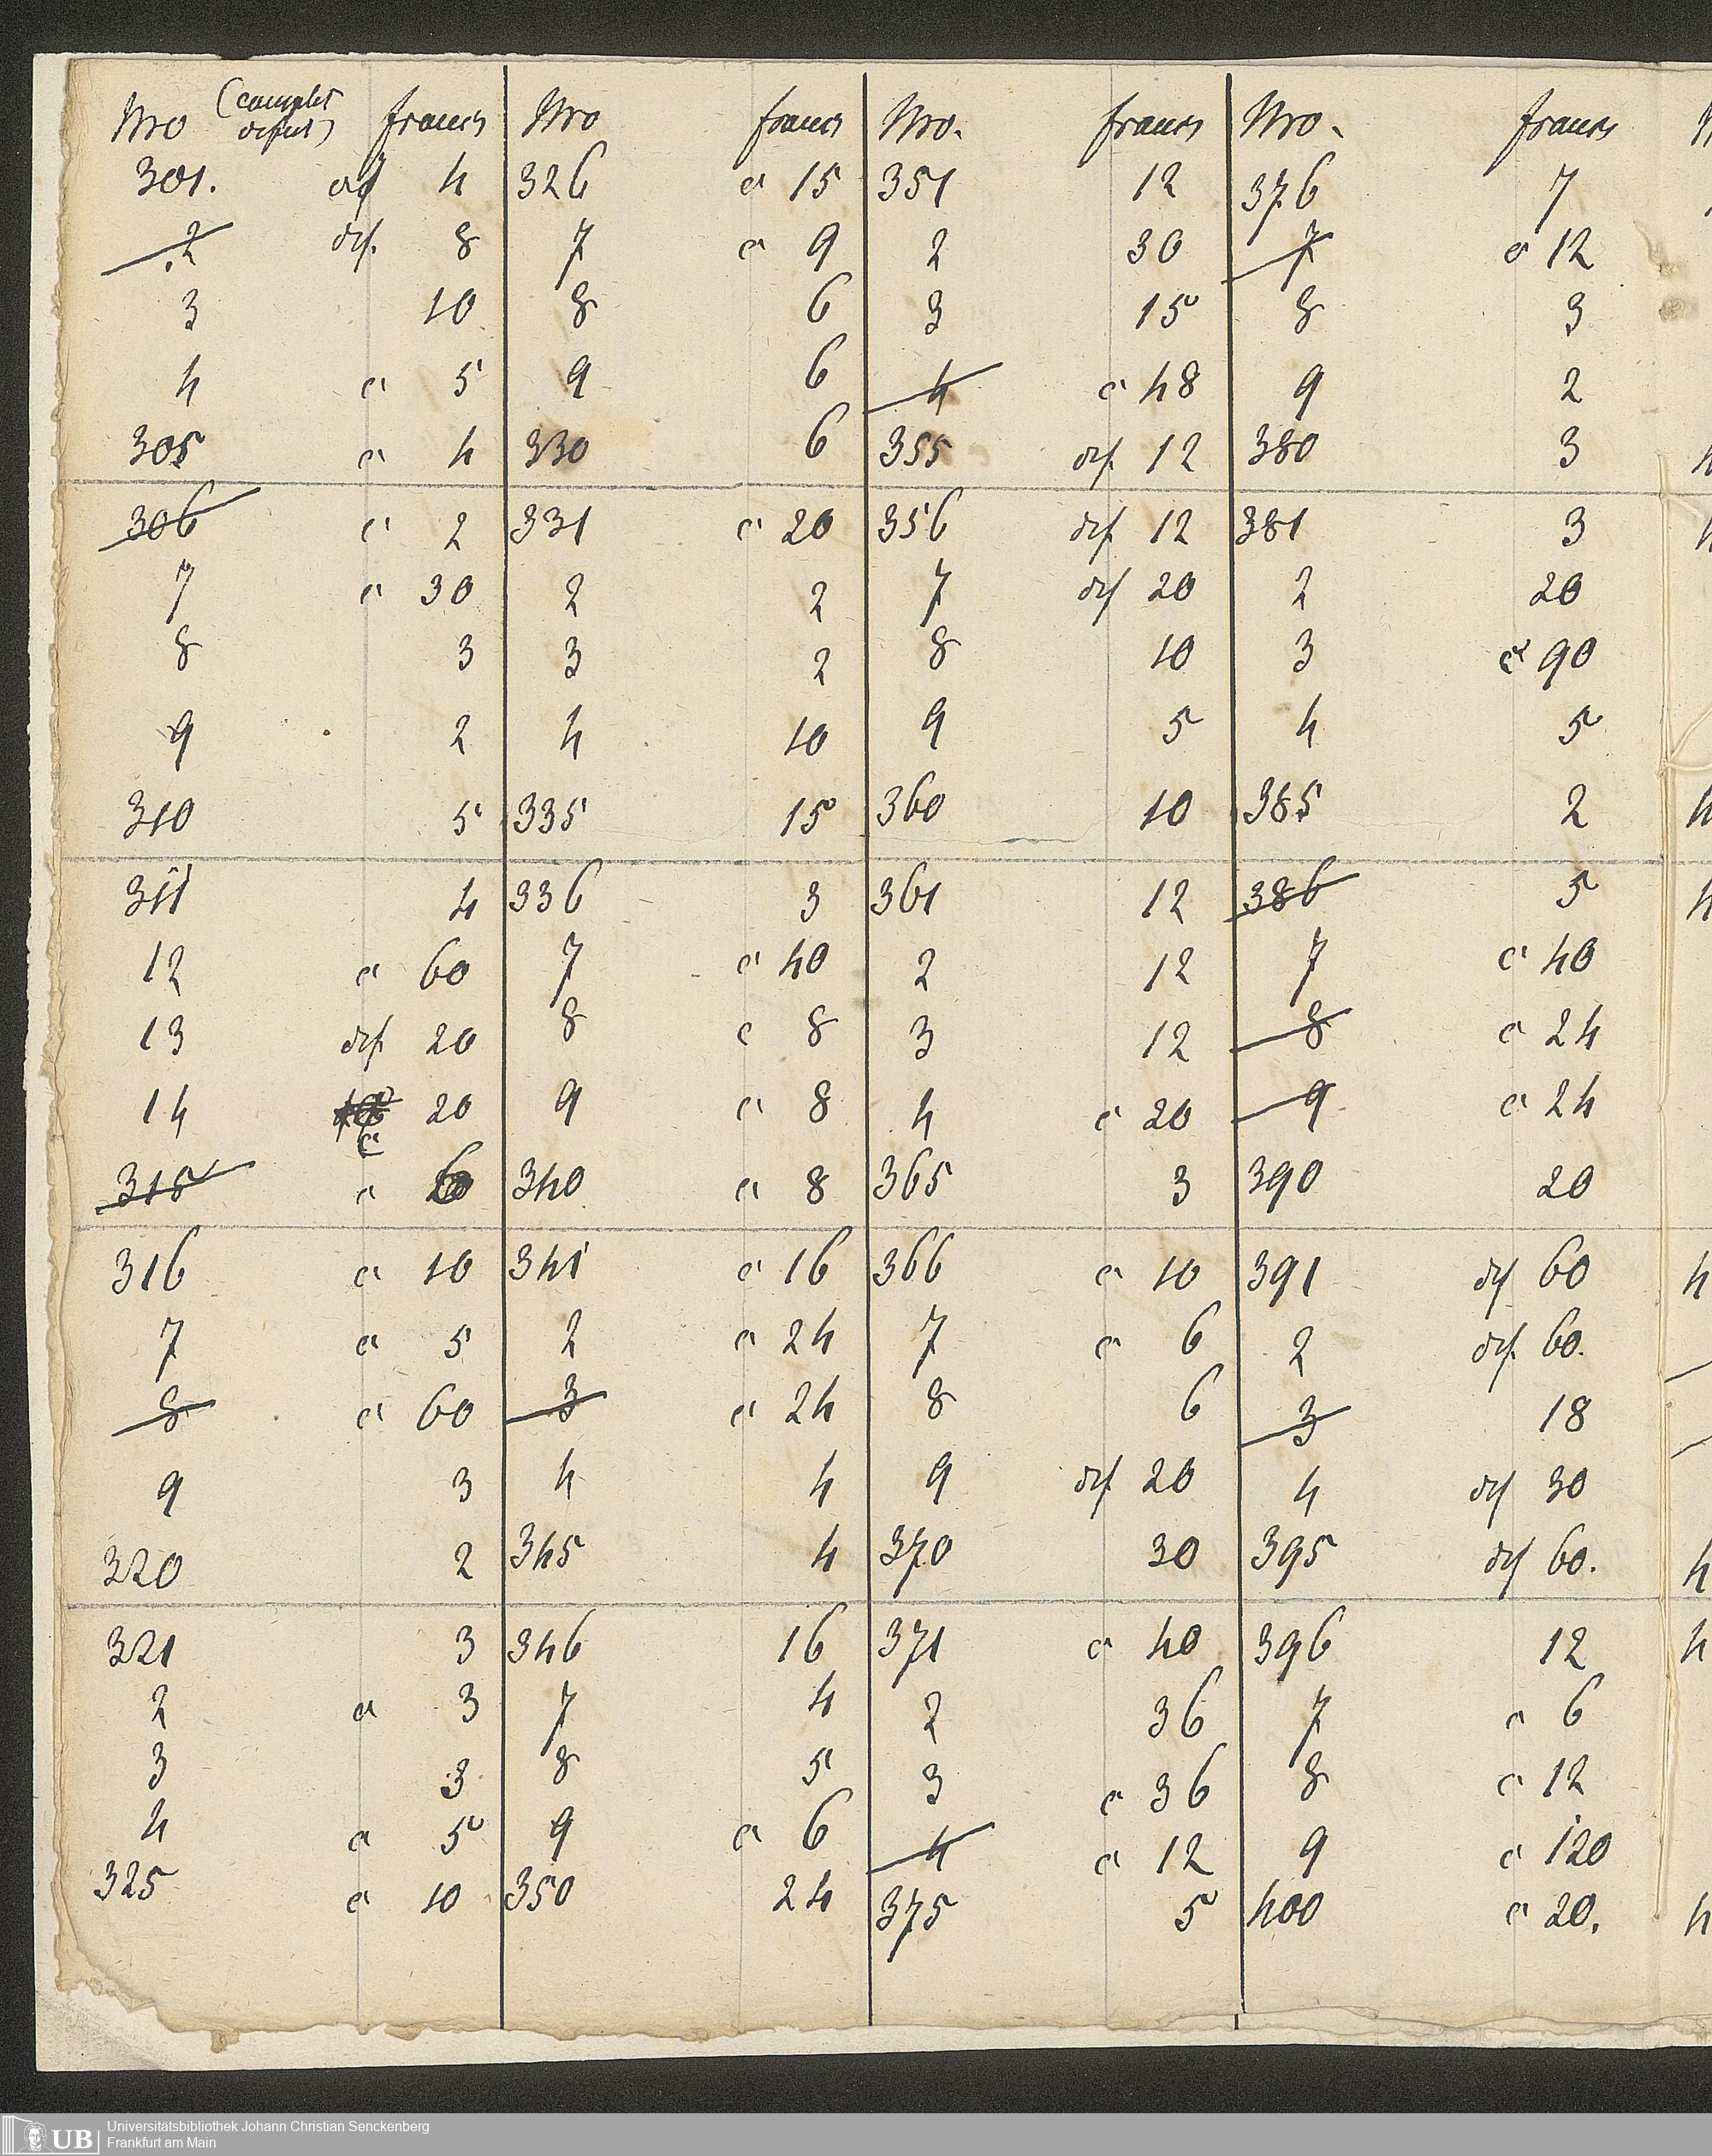 Nro (complet francs Nro francs Nro. francs Nro. francs
defect)
301. def 4 326 c 15 351 12 376 7
2 def. 8 7 c 9 2 30 7 c 12
3 10 8 6 3 15 8 3
4 c 5 9 6 4 c 48 9 2
305 c 4 330 6 355 def. 12 380 3
306 c 2 331 c 20 356 def 12 381 3
7 c 30 2 2 7 def 20 2 20
8 3 3 2 8 10 3 c 90
9 2 4 10 9 5 4 5
310 5 335 15 360 10 385 2
311 4 336 3 361 12 386 5
12 c 60 7 c 40 2 12 7 c 40
13 def 20 8 c 8 3 12 8 c 24
14 c 20 9 c 8 4 c 20 9 c 24
315 c 340 c 8 365 3 390 20
316 c 10 341 c 16 366 c 10 391 def 60
7 c 5 2 c 24 7 c 6 2 def. 60.
8 c 60 3 c 24 8 6 3 18
9 3 4 4 9 def 20 4 def 30
320 2 345 4 370 30 395 def 60.
321 3 346 16 371 c 40 396 12
2 c 3 7 4 2 36 7 c 6
3 3 8 5 3 c 36 8 c 12
4 c 5 9 c 6 4 c 12 9 c 120
325 c 10 350 24 375 5 400 c 20.
UB Universitätsbibliothek Johann Christian Senckenberg
Frankfurt am Main